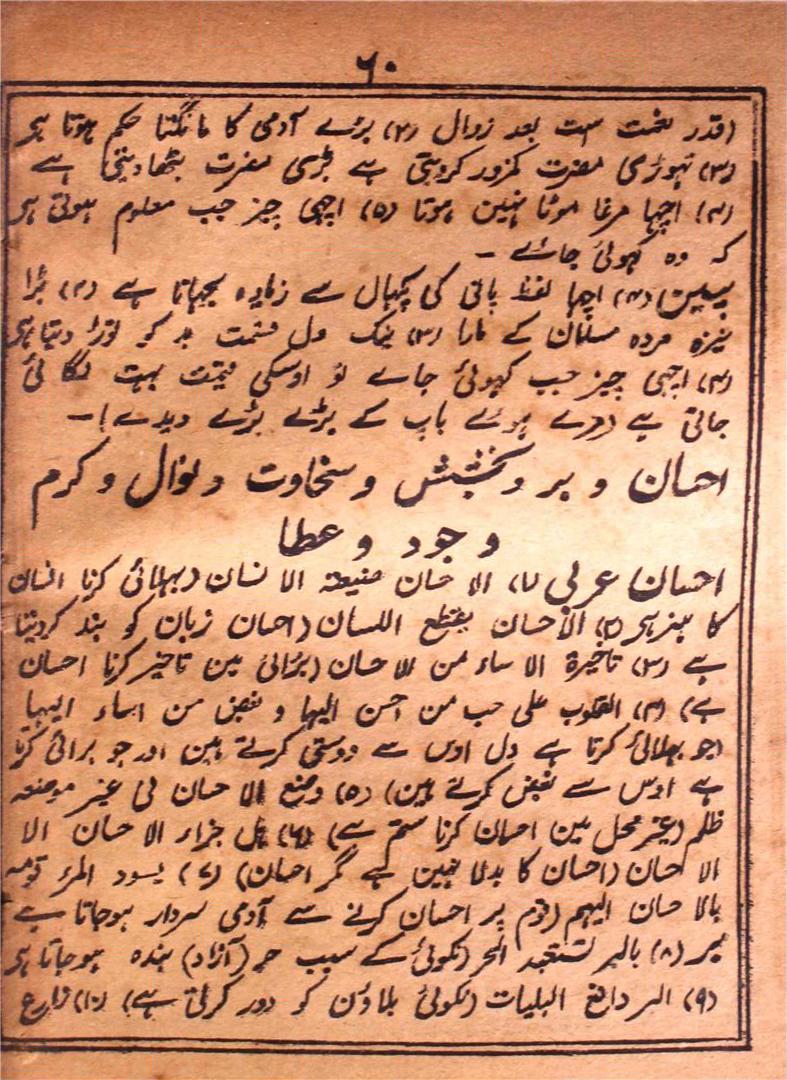 ۶۰
(قدر نعمت ہست بعد زوال (۲) بڑے آدمی کا مانگنا حکم ہوتا ہی
(۳) تہوڑی مضرت کمزور کردیتی ہے بڑی مضرت بٹھادیتی ہے
(۴) اچہا مرغا موٹا نہین ہوتا (۵) اچہی چیز جب معلوم ہوتی ہی
کہ وہ کہوئی جاے ۔
(۴) اچہا لفظ پانی کی پکہال سے زیادہ بجہاتا ہے (۲) بڑا
نیزہ مردہ مسلمان کے مارا (۳) نیک دل قسمت بد کو توڑ دیتا ہی
(۴) اچہی چیز جب کہوئی جاے تو اوسکی قیمت بہت لگائی
جاتی ہے (مرے ہوے باپ کے بڑے بڑے دیدے) ۔
احسان و بر و بخشش و سخاوت و نوال و کرم
و جود و عطا
احسان عربی (۱) الا حسان صنیعتہ الا نسان (بہلائی کرنا انسان
کا ہنر ہی (۲) الاحسان یقطع اللسان (احسان زبان کو بند کردیتا
ہے (۳) تاخیرة الا ساء من الا حسان (بڑائی مین تاخیر کرنا احسان
ہے) (۴) القلوب علی حب من احسن الیہا و بغض من اساء الیہا
(جو بہلائی کرتا ہے دل اوس سے دوستی کرتے ہین اور جو برائی کرتا
ہے اوس سے بغض کرتے ہین) (۵) وضع الا حسان فی غیر موضعہ
ظلم (غیر محل مین احسان کرنا ستم ہے) (۶) ہل جزاء الا حسان الا
الا حسان (احسان کا بدلا نہین ہے مگر احسان) (۷) یسود المرء قومہ
بالا حسان الیہم (قوم پر احسان کرنے سے آدمی سردار ہوجاتا ہے
(۸) بالبر یستعبد الحر (نکوئی کے سبب حر (آزاد) بندہ ہوجاتا ہی
(۹) البر دافع البلیات (نکوئی بلاؤن کو دور کرتی ہے) (۱۰) زارع